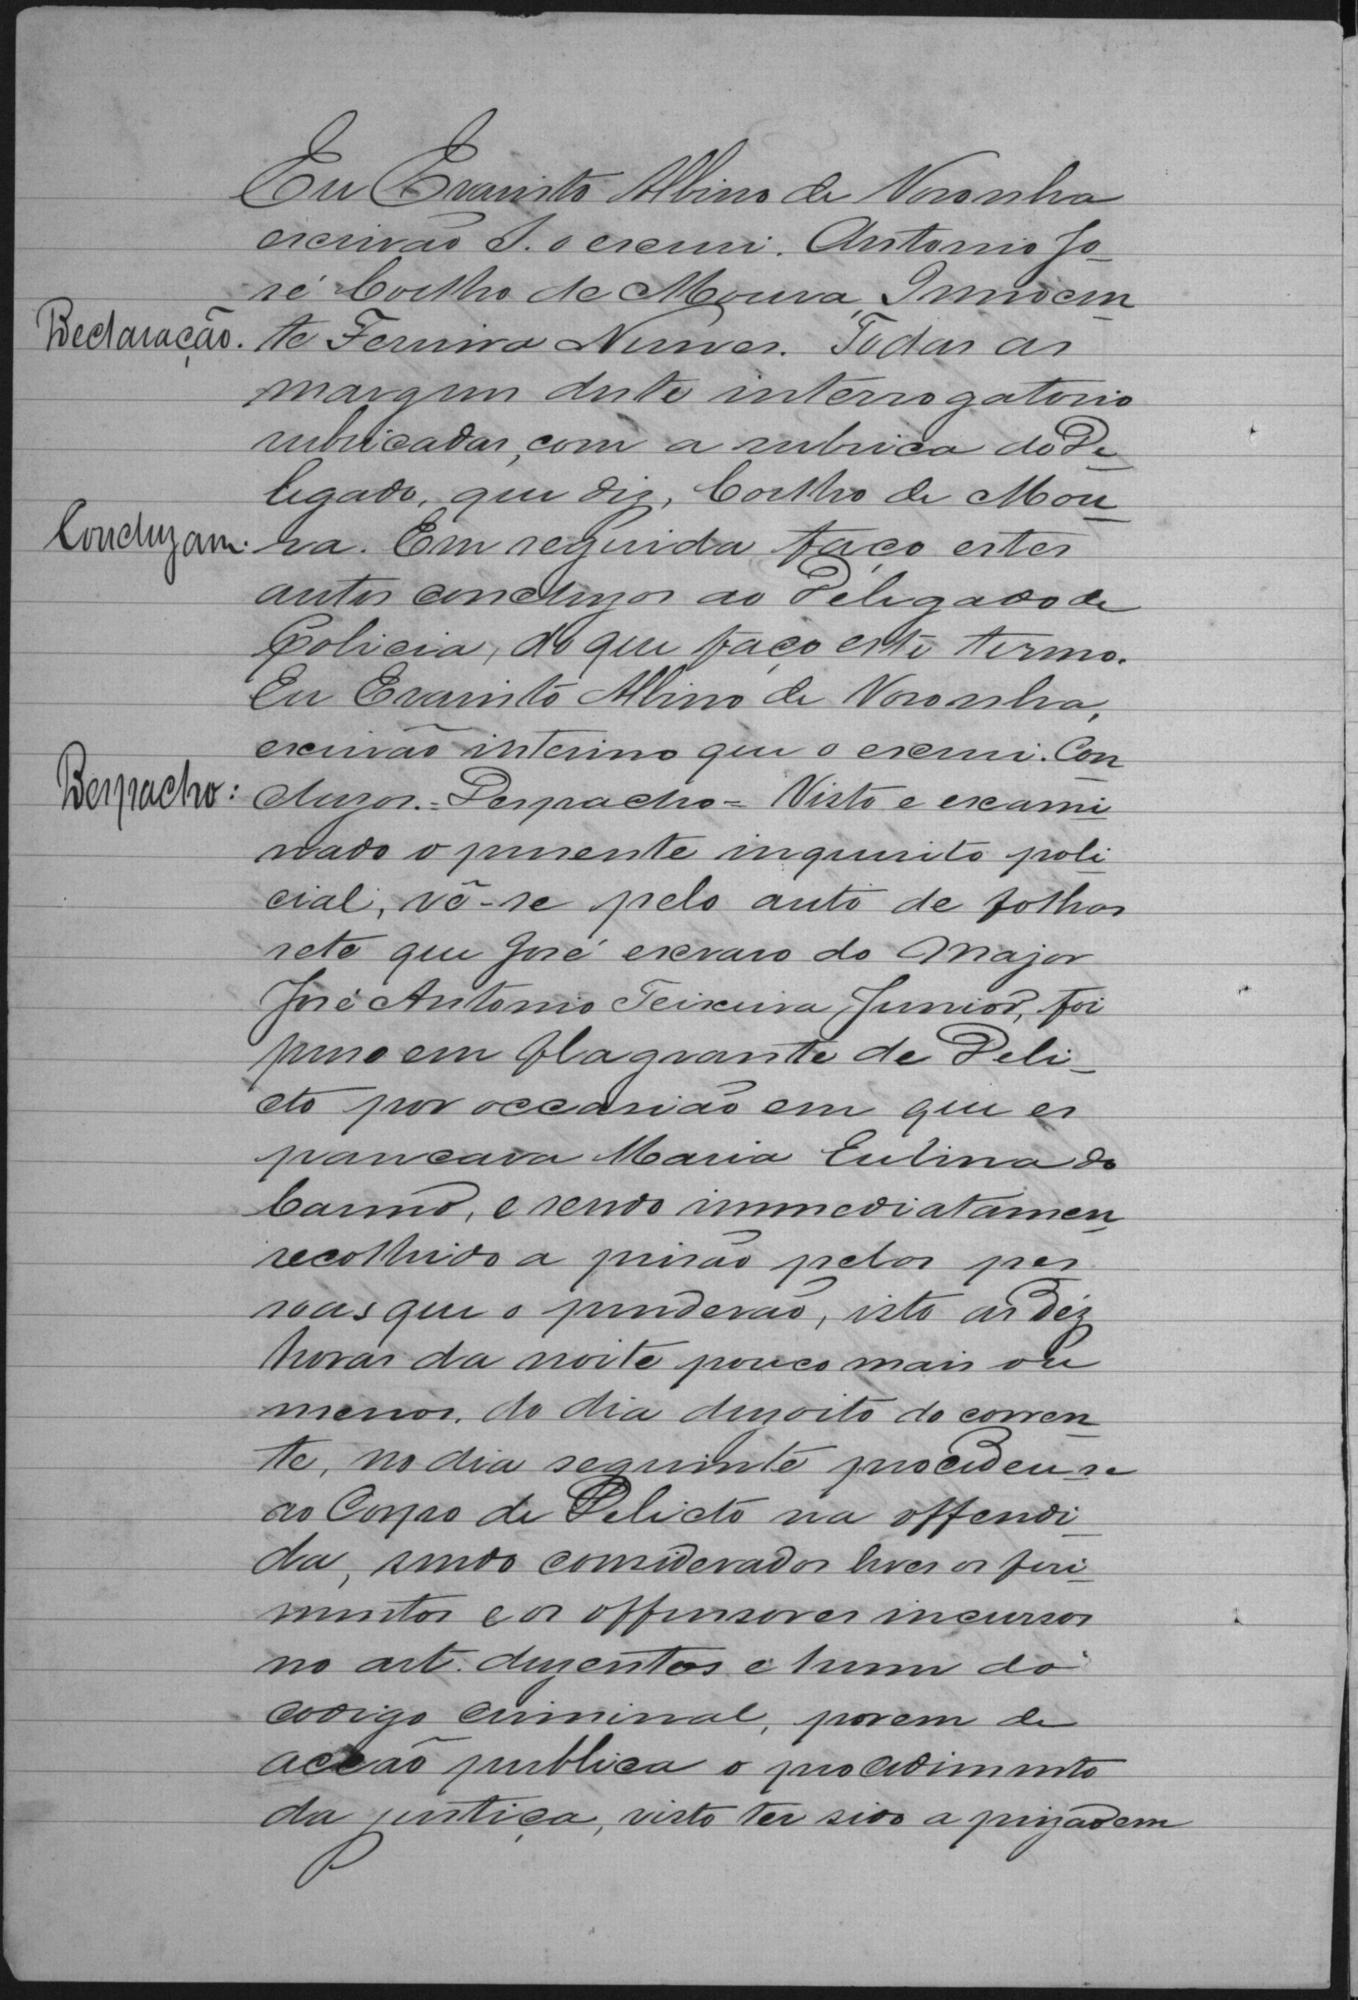 Eu Evaristo Albino de Noronha
escrivão I. o escrevi. Antonio Jo-
sé Coelho de Moura, Innocen-
Declaração. te Ferreira Nunes. Todas as
margens deste interrogatorio
rubricadas, com a rubrica do De-
legado, que diz, Coelho de Mou-
Concluzam. ra. Em seguida faço estes
autos concluzos ao Delegado de
Policia, do que faço este termo.
Eu Evaristo Albino de Noronha,
escrivão interino que o escrevi. Con-
Despacho: cluzos.=Despacho= Visto e exami-
nado o presente inquerito poli-
cial, vê-se pelo auto de folhas
sete que José escravo do Major
José Antonio Teixeira Junior, foi
preso em flagrante de Deli-
cto por occasião em que es
pancava Maria Eulina do
Carmo, e sendo immediatamen-
recolhido a prisão pelas pes
soas que o prenderão, isto as Dez
horas da noite pouco mais ou
menos, do dia dezoito do corren-
te, no dia seguinte procedeu-se
ao Corpo de Delicto na offendi-
da, sendo considerados leves os feri-
mentos e os offensores incursos
no art. duzentos e hum do
codigo criminal, porem de
acção publica o procedimento
da justiça, visto ter sido a prizão em